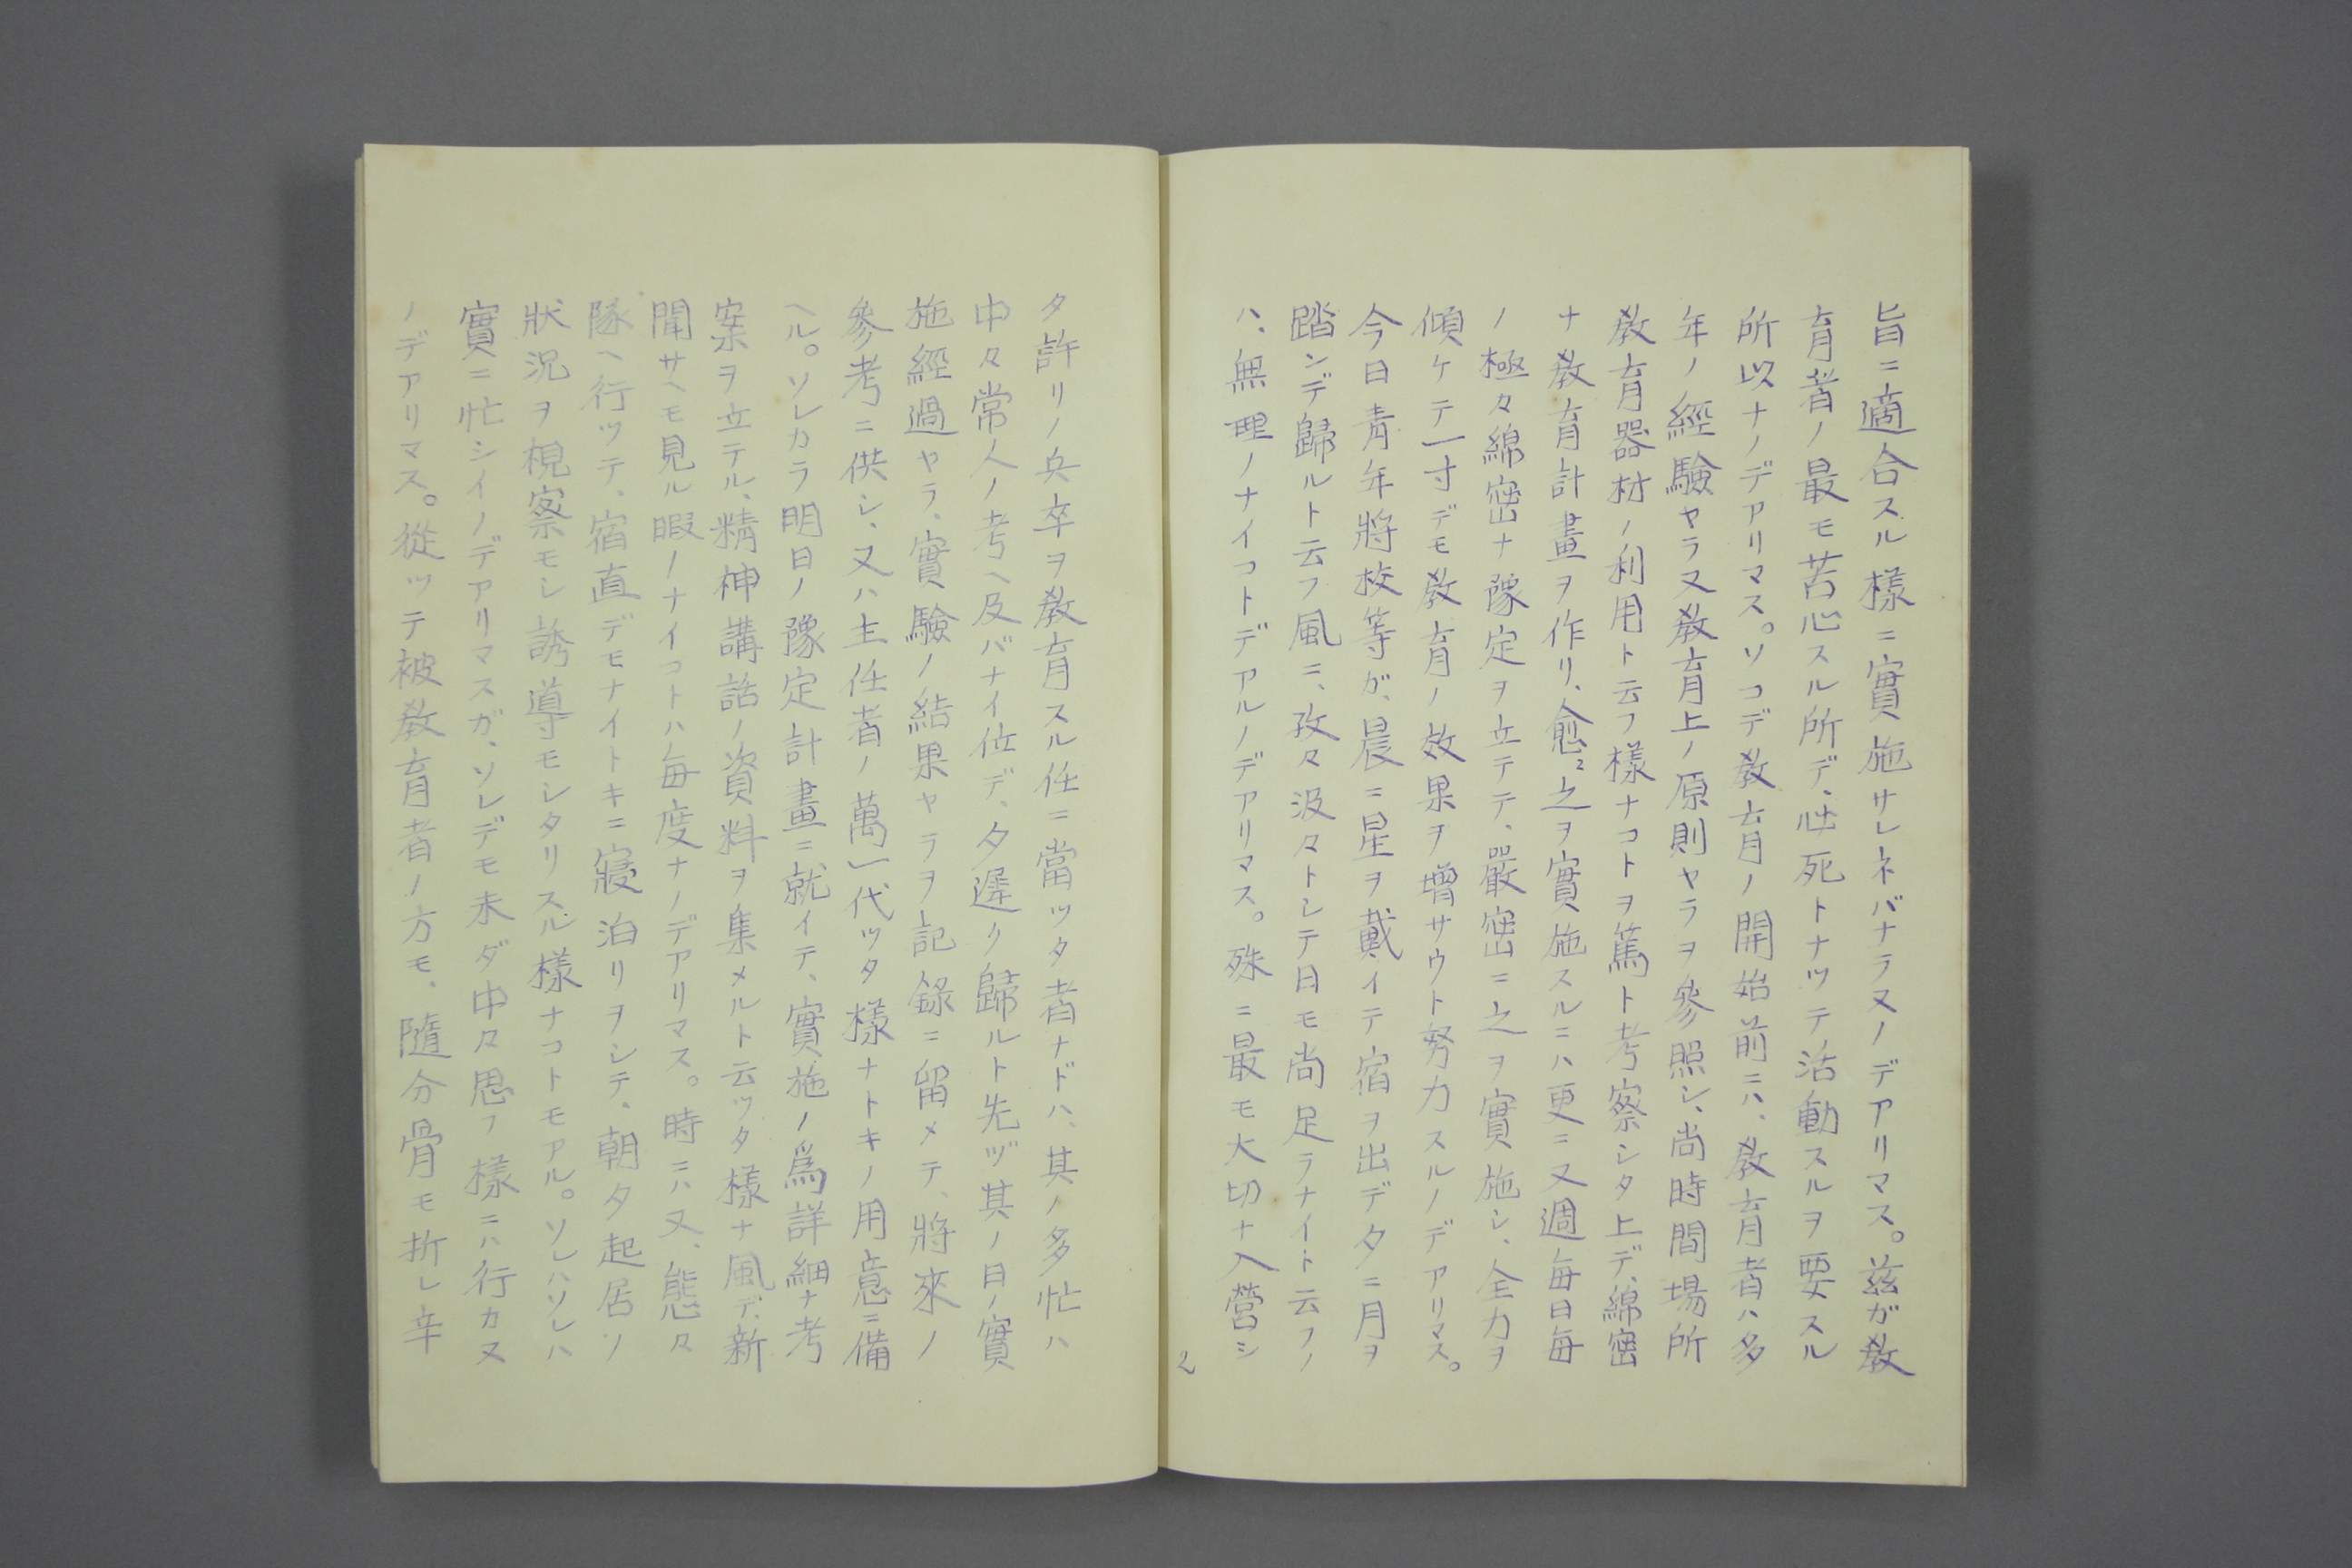 旨ニ適合スル樣ニ實施サレネバナラヌノデアリマス。茲ガ敎
育者ノ最モ苦心スル所デ、必死トナツテ活動スルヲ要スル
所以ナノデアリマス。ソコデ敎育ノ開始前ニハ、敎育者ハ多
年ノ經驗ヤラ又敎育上ノ原則ヤラヲ參照シ、尚時間場所
敎育器材ノ利用ト云フ樣ナコトヲ篤ト考察シタ上デ、綿密
ナ敎育計畫ヲ作リ、愈〻之ヲ實施スルニハ更ニ又週每日每
ノ極々綿密ナ豫定ヲ立テテ、嚴密ニ之ヲ實施シ、全力ヲ
傾ケテ一寸デモ敎育ノ效果ヲ增サウト努力スルノデアリマス。
今日靑年將校等ガ、晨ニ星ヲ戴イテ宿ヲ出デタニ月ヲ
踏ンデ歸ルト云フ風ニ、孜々汲々トシテ日モ尚足ラナイト云フノ
ハ、無理ノナイコトデアルノデアリマス。殊ニ最モ大切ナ入營シ
2
タ許リノ兵卒ヲ敎育スル任ニ當ツタ者ナドハ、其ノ多忙ハ
中々常人ノ考ヘ及バナイ位デ、夕遲ク歸ルト先ヅ其ノ日ノ實
施經過ヤラ、實驗ノ結果ヤラヲ記錄ニ留メテ、將來ノ
參考ニ供シ、又ハ主任者ノ萬一代ツタ樣ナトキノ用意ニ備
ヘル。ソレカラ明日ノ豫定計畫ニ就イテ、實施ノ爲詳細ナ考
案ヲ立テル、精神講話ノ資料ヲ集メルト云ツタ樣ナ風デ、新
聞サヘモ見ル暇ノナイコトハ每度ナノデアリマス。時ニハ又、態々
隊ヘ行ツテ、宿直デモナイトキニ寢泊リヲシテ、朝夕起居ノ
狀況ヲ視察モシ誘導モシタリスル樣ナコトモアル。ソレハソレハ
實ニ忙シイノデアリマスガ、ソレデモ未ダ中々思フ樣ニハ行カヌ
ノデアリマス。從ツテ被敎育者ノ方モ、隨分骨モ折レ辛